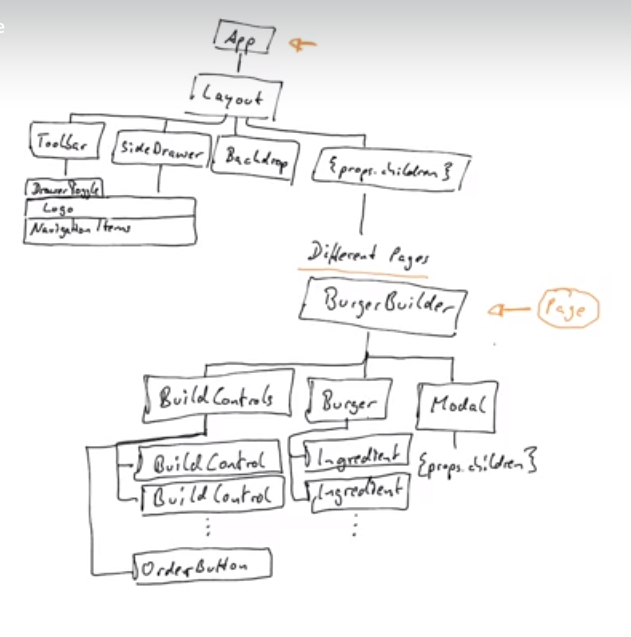 e
App
Layout
Toolbar
SideDrawer
Backdrop
{props.children}
DrawerToggle
Logo
Navigation Items
Different Pages
BurgerBuilder
Page
BuildControls
Burger
Modal
BuildControl
Ingredient
{props.children}
BuildControl
Ingredient
OrderButton